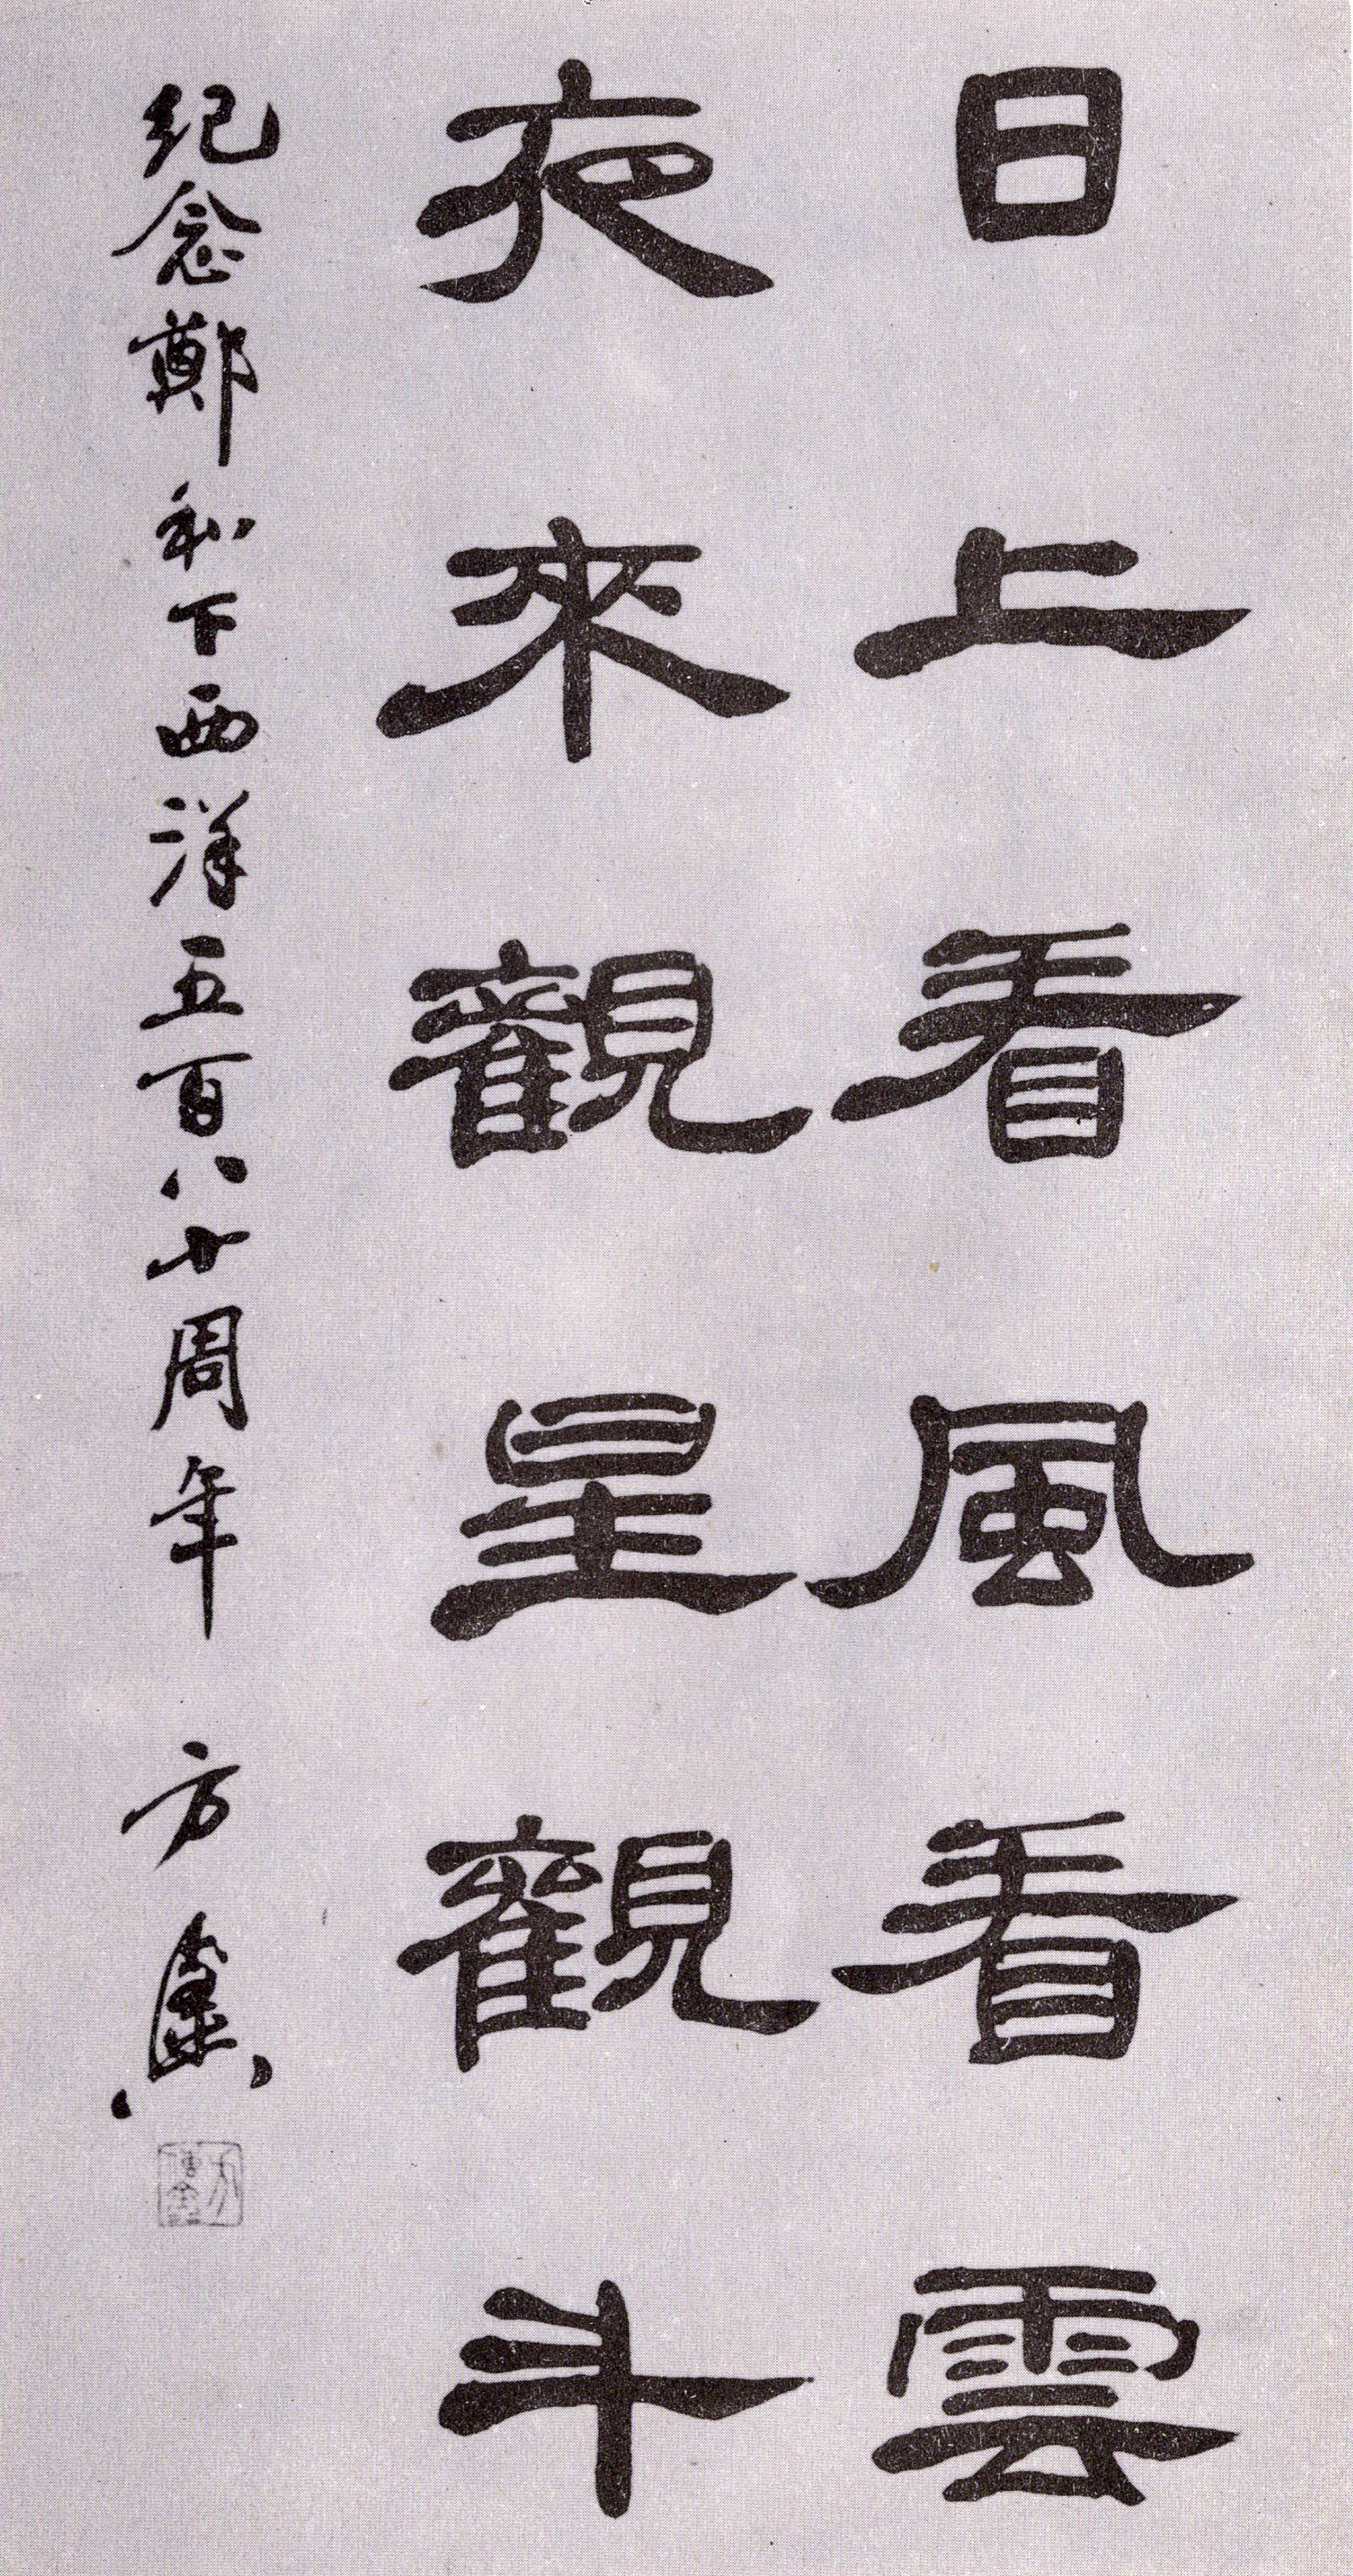 日上看風看雲
夜來觀星觀斗
紀念鄭和下西洋五百八十周年 方